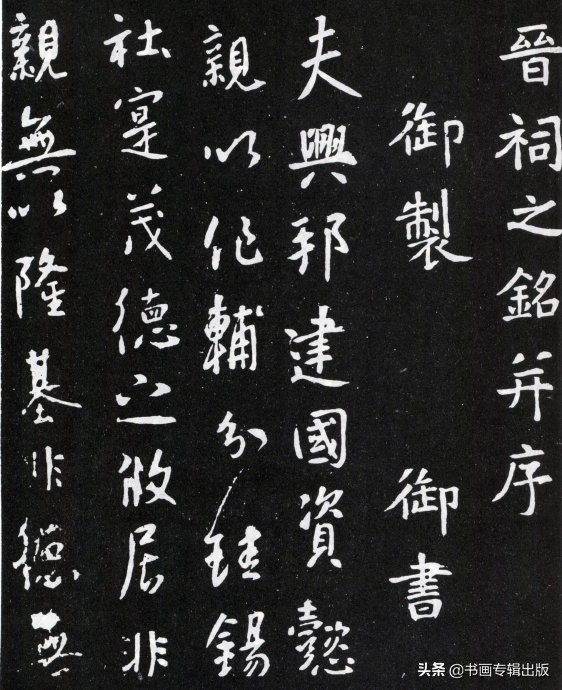 晉祠之銘并序
御製 御書
夫興邦建國資懿
親以作輔分珪錫
社寔茂德之攸居非
親無以隆基非德無
头条 @书画专辑出版